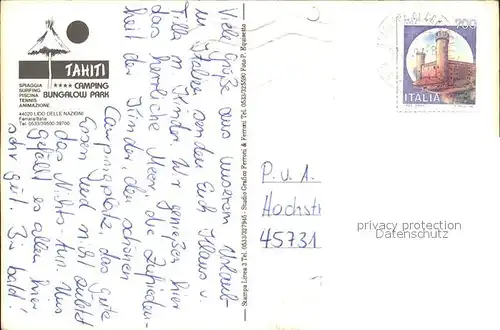 TAHITI
★★★★ CAMPING
BUNGALOW PARK
SPIAGGIA
SURFING
PISCINA
TENNIS
ANIMAZIONE
44020 LIDO DELLE NAZIONI
Ferrara/Italia
Tel. 0533/39500-39700
Viele Grüße aus unserem Urlaub
in Italien senden Euch Klaus u.
Tilla m. Kinder. Wir genießen hier
das herrliche Meer, die Zufrieden-
heit der Kinder, den schönen
Campingplatz, das gute
Essen und nicht zuletzt
das Nichts-tun. Uns
gefällt es allen hier
sehr gut. Bis bald!
Stampa Linea 3 Tel. 0533/327945 - Studio Grafico Ferroni & Ferroni Tel. 0533/325590 Foto P. Equisetto
700
ITALIA
P. u. A.
Hochst
45731
privacy protection
watermark